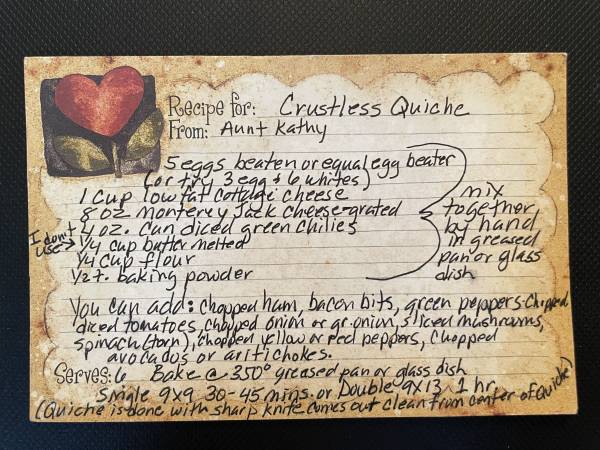 Recipe for: Crustless Quiche
From: Aunt Kathy
5 eggs beaten or equal egg beater
(or try 3 egg & 6 whites)
1 cup lowfat cottage cheese
8 oz. Monterey Jack cheese-grated
4 oz. can diced green chilies
I don't use → 1/4 cup butter melted
1/4 cup flour
1/2 t. baking powder
mix
together
by hand
in greased
pan or glass
dish
You can add: chopped ham, bacon bits, green peppers-chopped
diced tomatoes, chopped onion or gr. onion, sliced mushrooms,
spinach (torn), chopped yellow or red peppers, chopped
avocados or aritichokes.
Serves: 6 Bake @ 350° greased pan or glass dish
Single 9x9 30-45 mins. or Double 9x13 1 hr.
(Quiche is done with sharp knife comes out clean from center of Quiche)